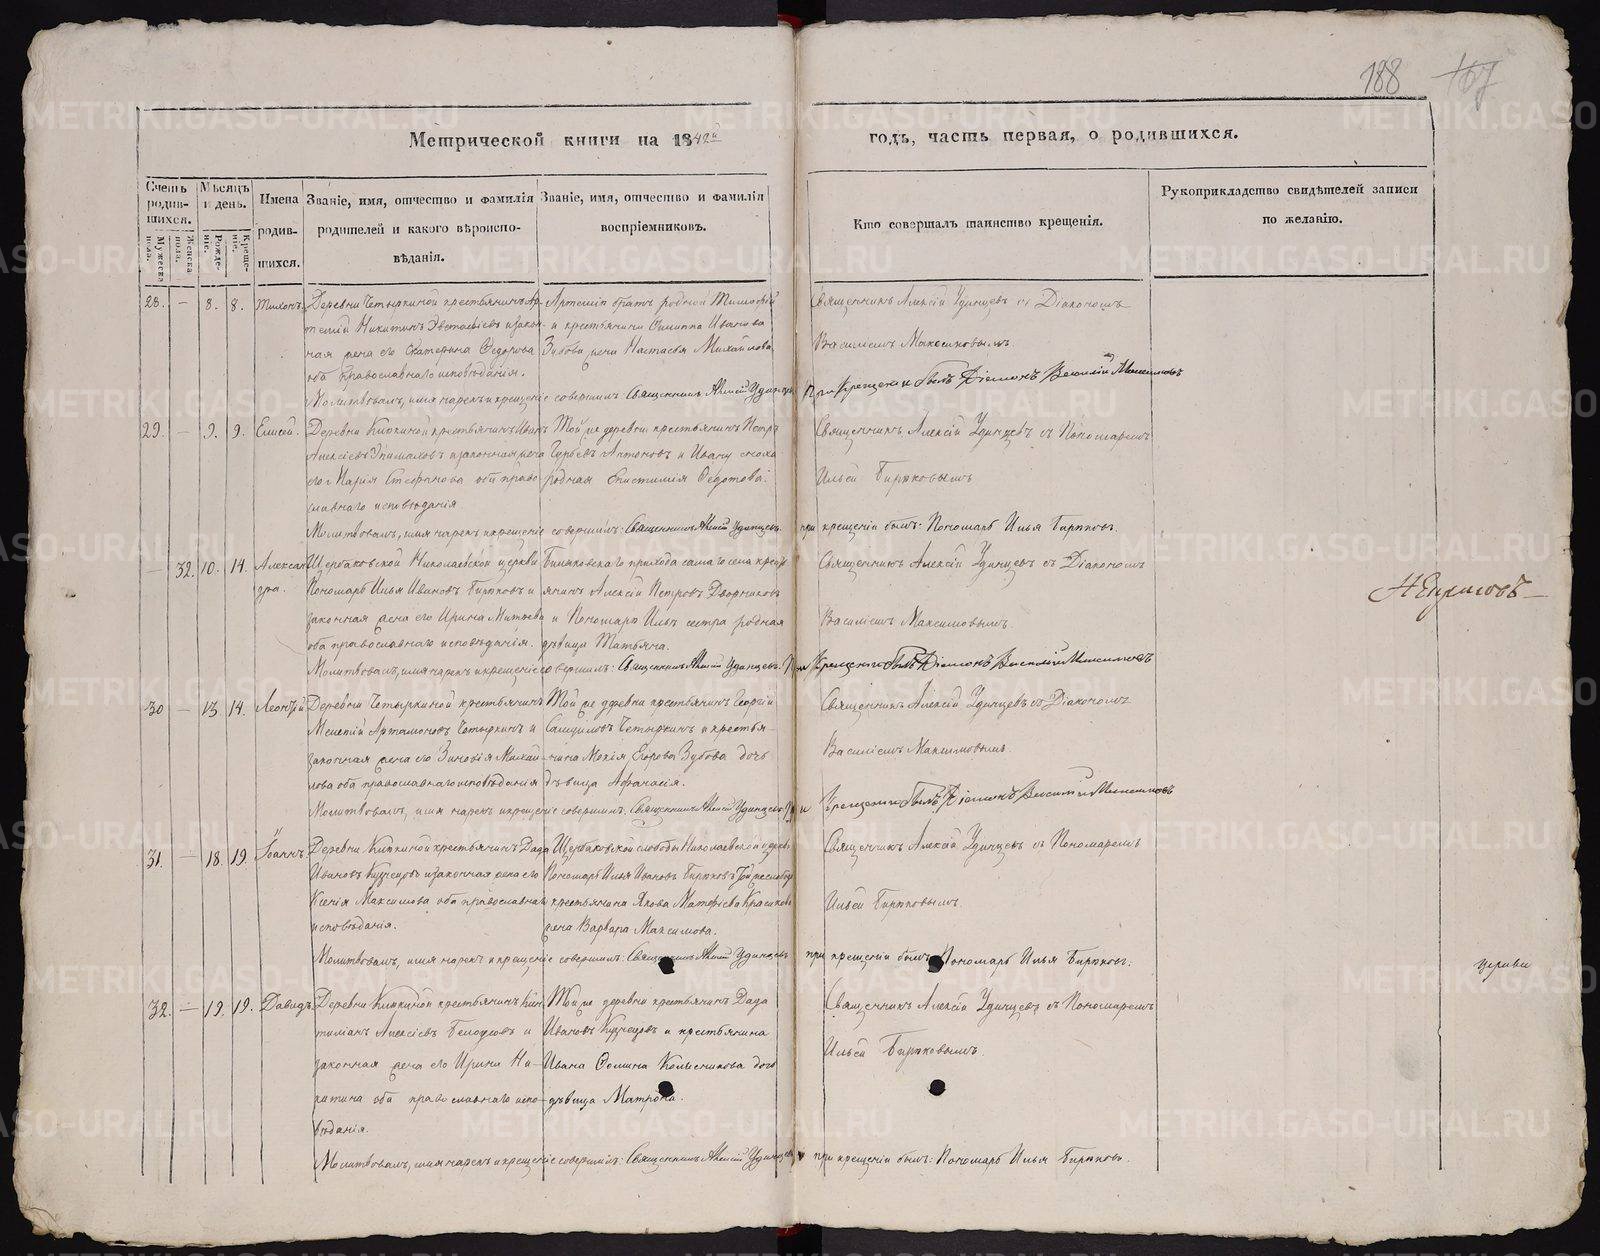 188 167
Метрической книги на 1842й годъ, часть первая, о родившихся.
Счетъ родив- шихся.
Мужеска пола.
Женска пола.
Мѣсяцъ и день.
Рожде- нія.
Креще- нія.
Имена родив- шихся.
Званіе, имя, отчество и фамилія родителей и какого вѣроиспо- вѣданія.
Званіе, имя, отчество и фамилія воспріемниковъ.
Кто совершалъ таинство крещенія.
Рукоприкладство свидѣтелей записи по желанію.
28. — 8. 8. Тихонъ.
Деревни Четыркиной крестьянинъ Ар-
темій Никитинъ и закон-
ная жена его Екатерина Федорова
оба православнаго исповѣданія.
Артемія братъ родной Тимофей
и крестьянина Филиппа Иванова
Зубова жена Настасья Михайлова
Священникъ Алексій Удинцевъ съ Діакономъ
Василіемъ Максимовымъ.
Молитвовалъ, имя нарекъ и крещеніе совершилъ: Священникъ Алексій Удинцевъ. При крещеніи былъ Діаконъ Василій Максимовъ
29. — 9. 9. Елисей.
Деревни Кипкиной крестьянинъ Иванъ
Алексіевъ и законная жена
его Марія Стефанова оба право-
славнаго исповѣданія
Той же деревни крестьянинъ Петръ
Гурьевъ Антоновъ и Ивану сноха
родная Епистимія Федотова.
Священникъ Алексій Удинцевъ съ Пономаремъ
Ильей Бирюковымъ
Молитвовалъ, имя нарекъ и крещеніе совершилъ: Священникъ Алексій Удинцевъ. при крещеніи былъ: Пономарь Илья Бирюковъ.
— 32. 10. 14. Алексан-
дра.
Щербаковской Николаевской церкви
Пономарь Илья Ивановъ Бирюковъ и
законная жена его Ирина Матвѣева
оба православнаго исповѣданія.
прихода самаго села кресть-
янинъ Алексій Петровъ Дворниковъ
и Пономаря Ильи сестра родная
дѣвица Татьяна.
Священникъ Алексій Удинцевъ съ Діакономъ
Василіемъ Максимовымъ.
Молитвовалъ, имя нарекъ и крещеніе совершилъ: Священникъ Алексій Удинцевъ. При крещеніи былъ Діаконъ Василій Максимовъ
30 — 13. 14. Леонтій
Деревни Четыркиной крестьянинъ
Мелетій Артамоновъ Четыркинъ и
законная жена его Зиновія Михай-
лова оба православнаго исповѣданія
Той же деревни крестьянинъ Георгій
Самуиловъ Четыркинъ и крестья-
нина Мокія Егорова Зубова дочь
дѣвица Афанасія.
Священникъ Алексій Удинцевъ съ Діакономъ
Василіемъ Максимовымъ.
Молитвовалъ, имя нарекъ и крещеніе совершилъ: Священникъ Алексій Удинцевъ. При крещеніи былъ Діаконъ Василій Максимовъ
31. — 18. 19. Іоаннъ.
Деревни Кипкиной крестьянинъ Дада
Ивановъ Кузнецовъ и законная жена его
Ксенія Максимова оба православнаго
исповѣданія.
Щербаковской слободы Николаевской церкви
Пономарь Илья Ивановъ Бирюковъ той же слободы
крестьянина Якова Матфіева Красикова
жена Варвара Максимова.
Священникъ Алексій Удинцевъ съ Пономаремъ
Ильей Бирюковымъ.
Молитвовалъ, имя нарекъ и крещеніе совершилъ: Священникъ Алексій Удинцевъ при крещеніи былъ Пономарь Илья Бирюковъ.
32. — 19. 19. Давидъ.
Деревни Кипкиной крестьянинъ Кин-
тиліанъ Алексіевъ и
законная жена его Ирина Ни-
китина оба православнаго испо-
вѣданія.
Той же деревни крестьянинъ Дада
Ивановъ Кузнецовъ и крестьянина
Ивана Фомина Колесникова дочь
дѣвица Матрона.
Священникъ Алексій Удинцевъ съ Пономаремъ
Ильей Бирюковымъ.
Молитвовалъ, имя нарекъ и крещеніе совершилъ: Священникъ Алексій Удинцевъ при крещеніи былъ: Пономарь Илья Бирюковъ.
церкви
METRIKI.GASO-URAL.RU